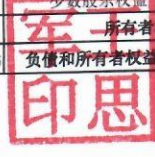 少数股东权益
所有者
负债和所有者权益
军
印思